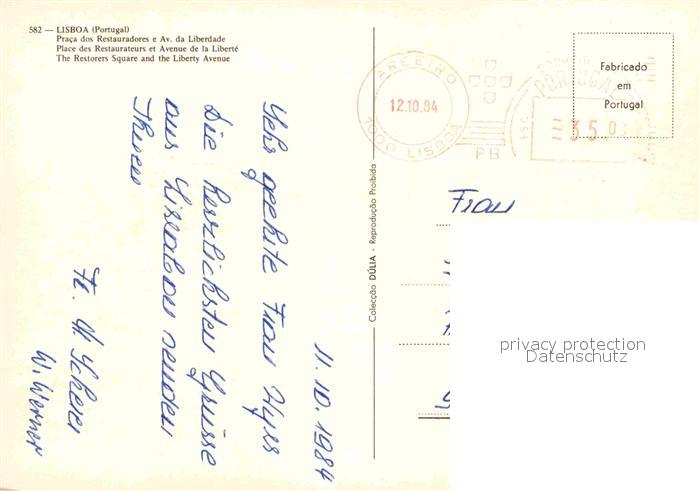 582 — LISBOA (Portugal)
Praça dos Restauradores e Av. da Liberdade
Place des Restaurateurs et Avenue de la Liberté
The Restorers Square and the Liberty Avenue
AREEIRO
12.10.84
1000 LISBOA
PB
PORTUGAL
35.0
Fabricado
em
Portugal
Colecção DÚLIA - Reprodução Proibida
11.10.1984
Sehr geehrte Frau Hyss
Die herzlichsten Grüsse
aus Lissabon senden
Ihnen
Fr. M. Scherer
W. Werner
Frau
privacy protection
Datenschutz